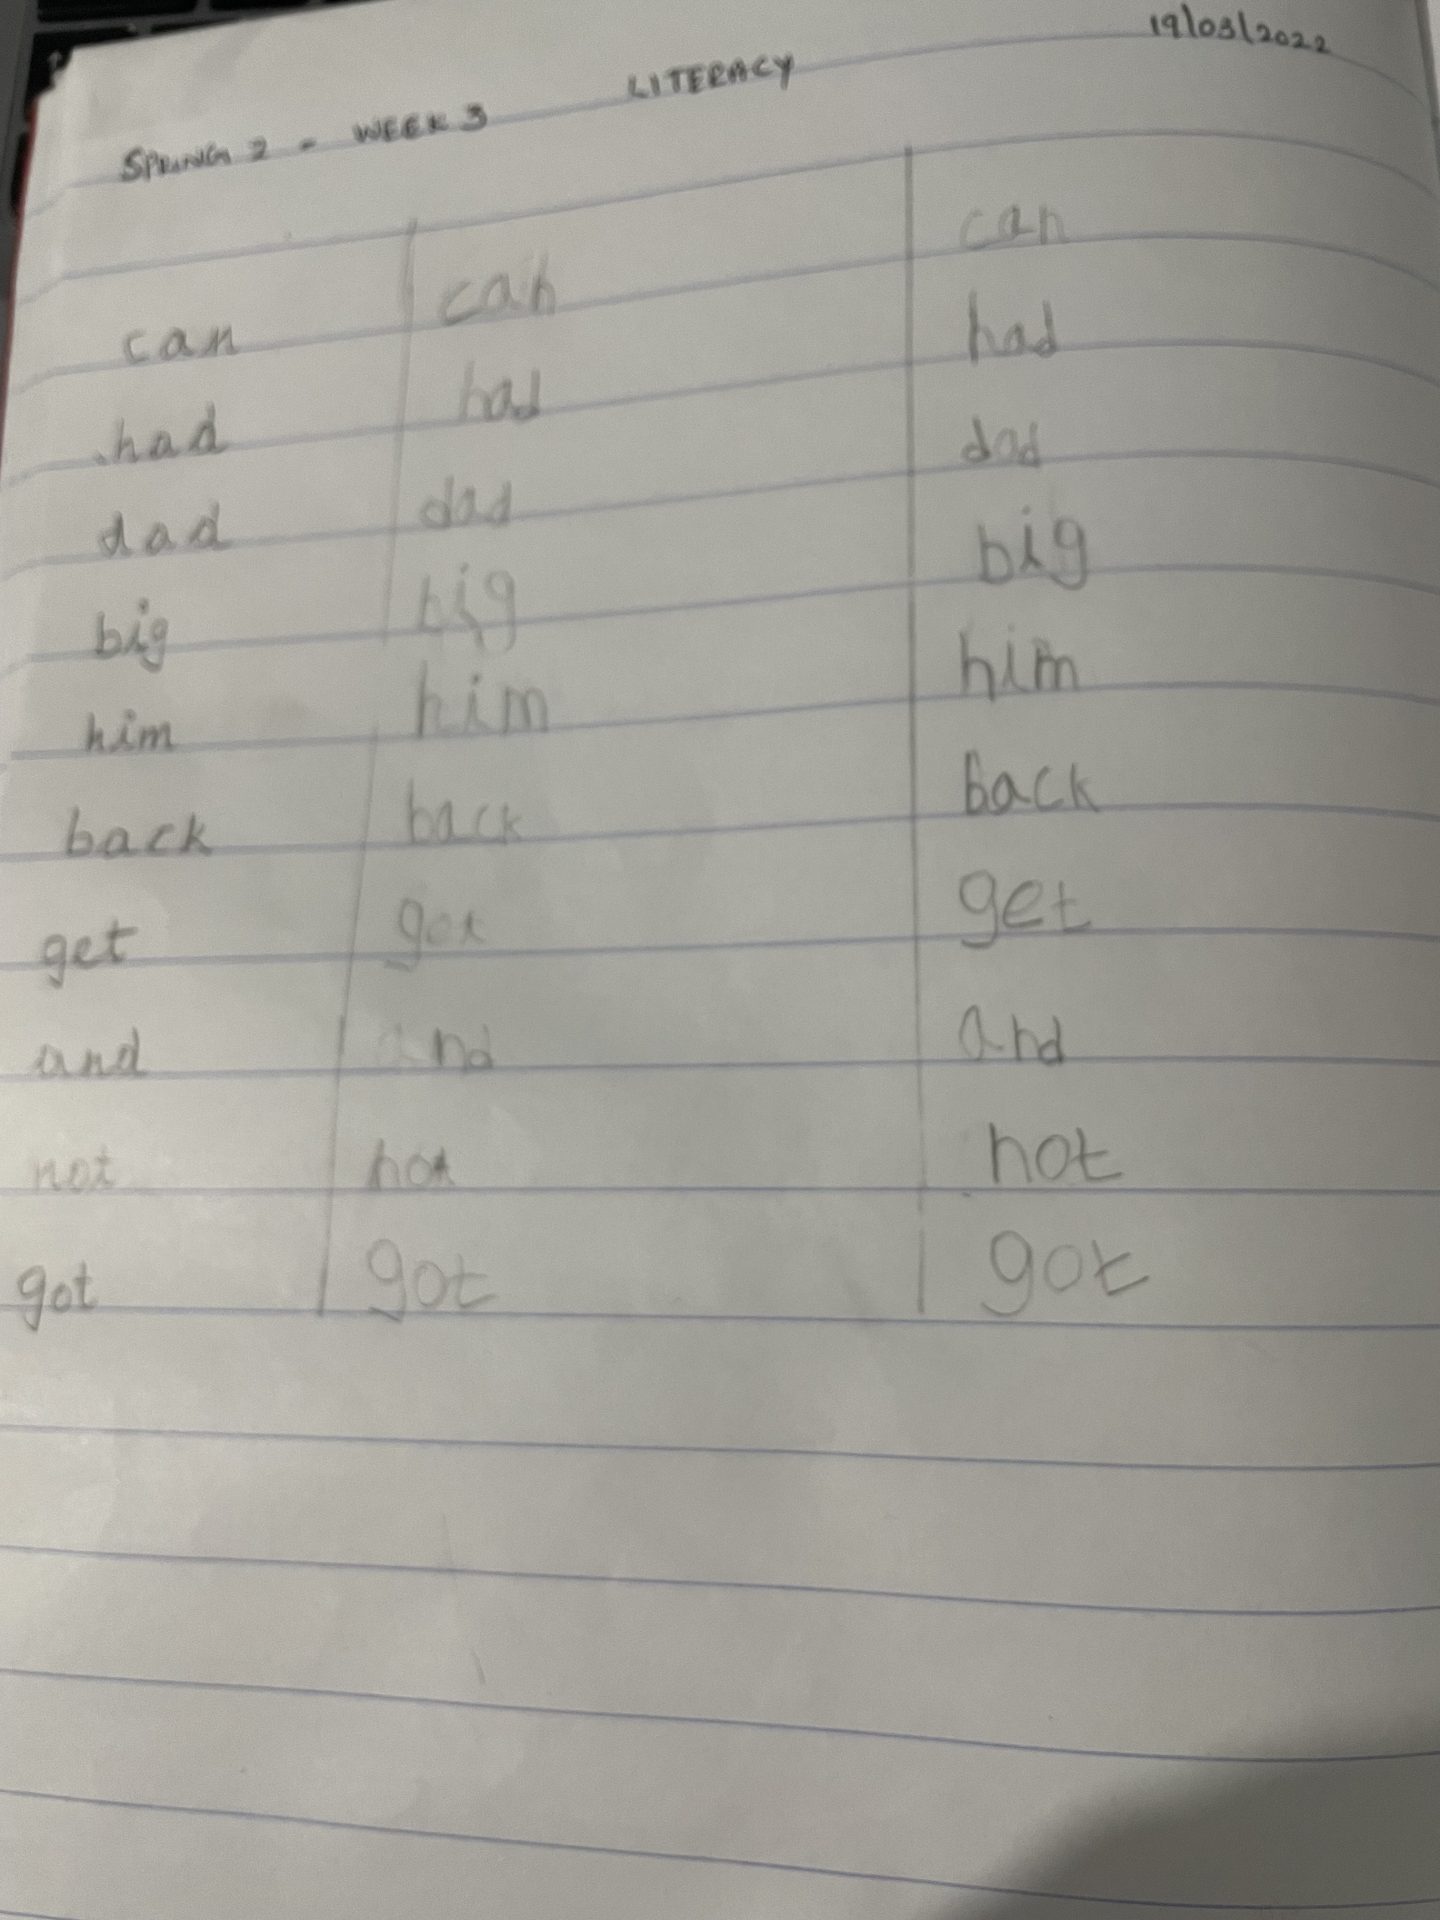 19/03/2022
SPRING 2 - WEEK 3 LITERACY
can can can
had had had
dad dad dad
big big big
him him him
back back back
get get get
and and and
not not not
got got got